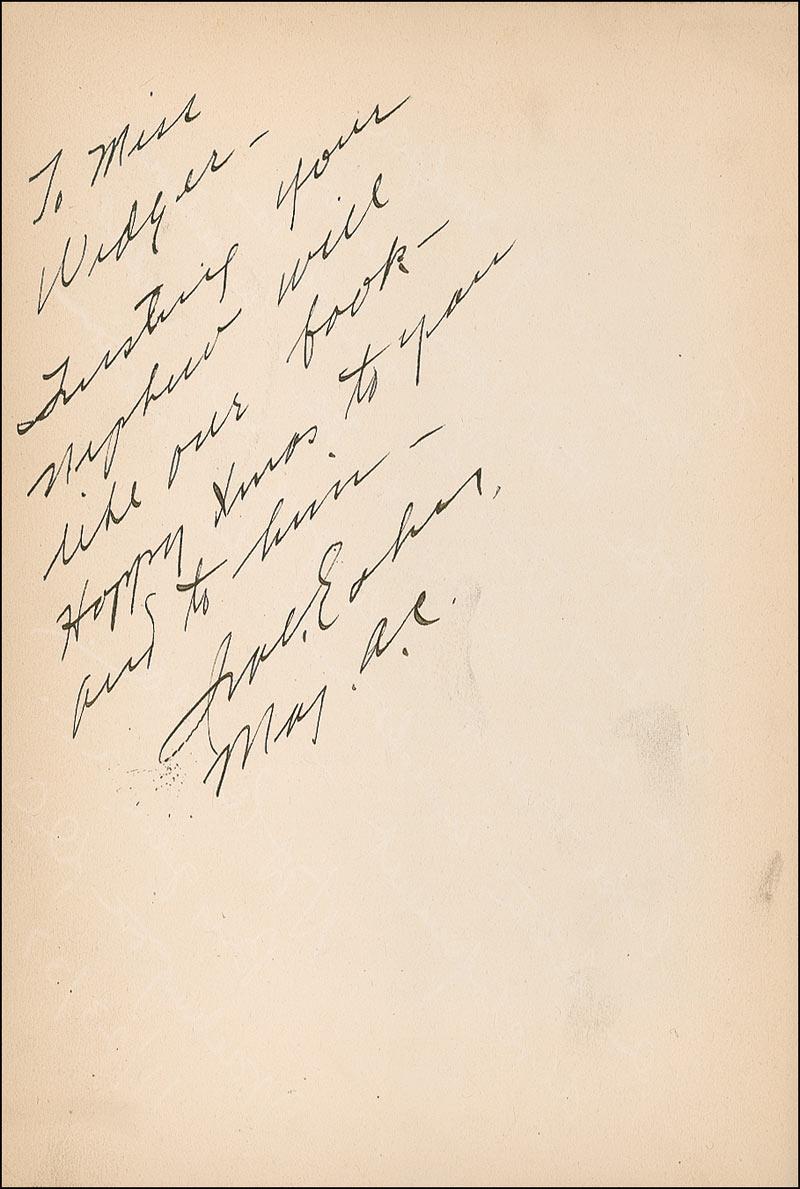 To Miss
Widger —
Trusting your
nephew will
like our book —
Happy Xmas. to you
and to him —
Ira C. Eaker,
Maj. A.C.